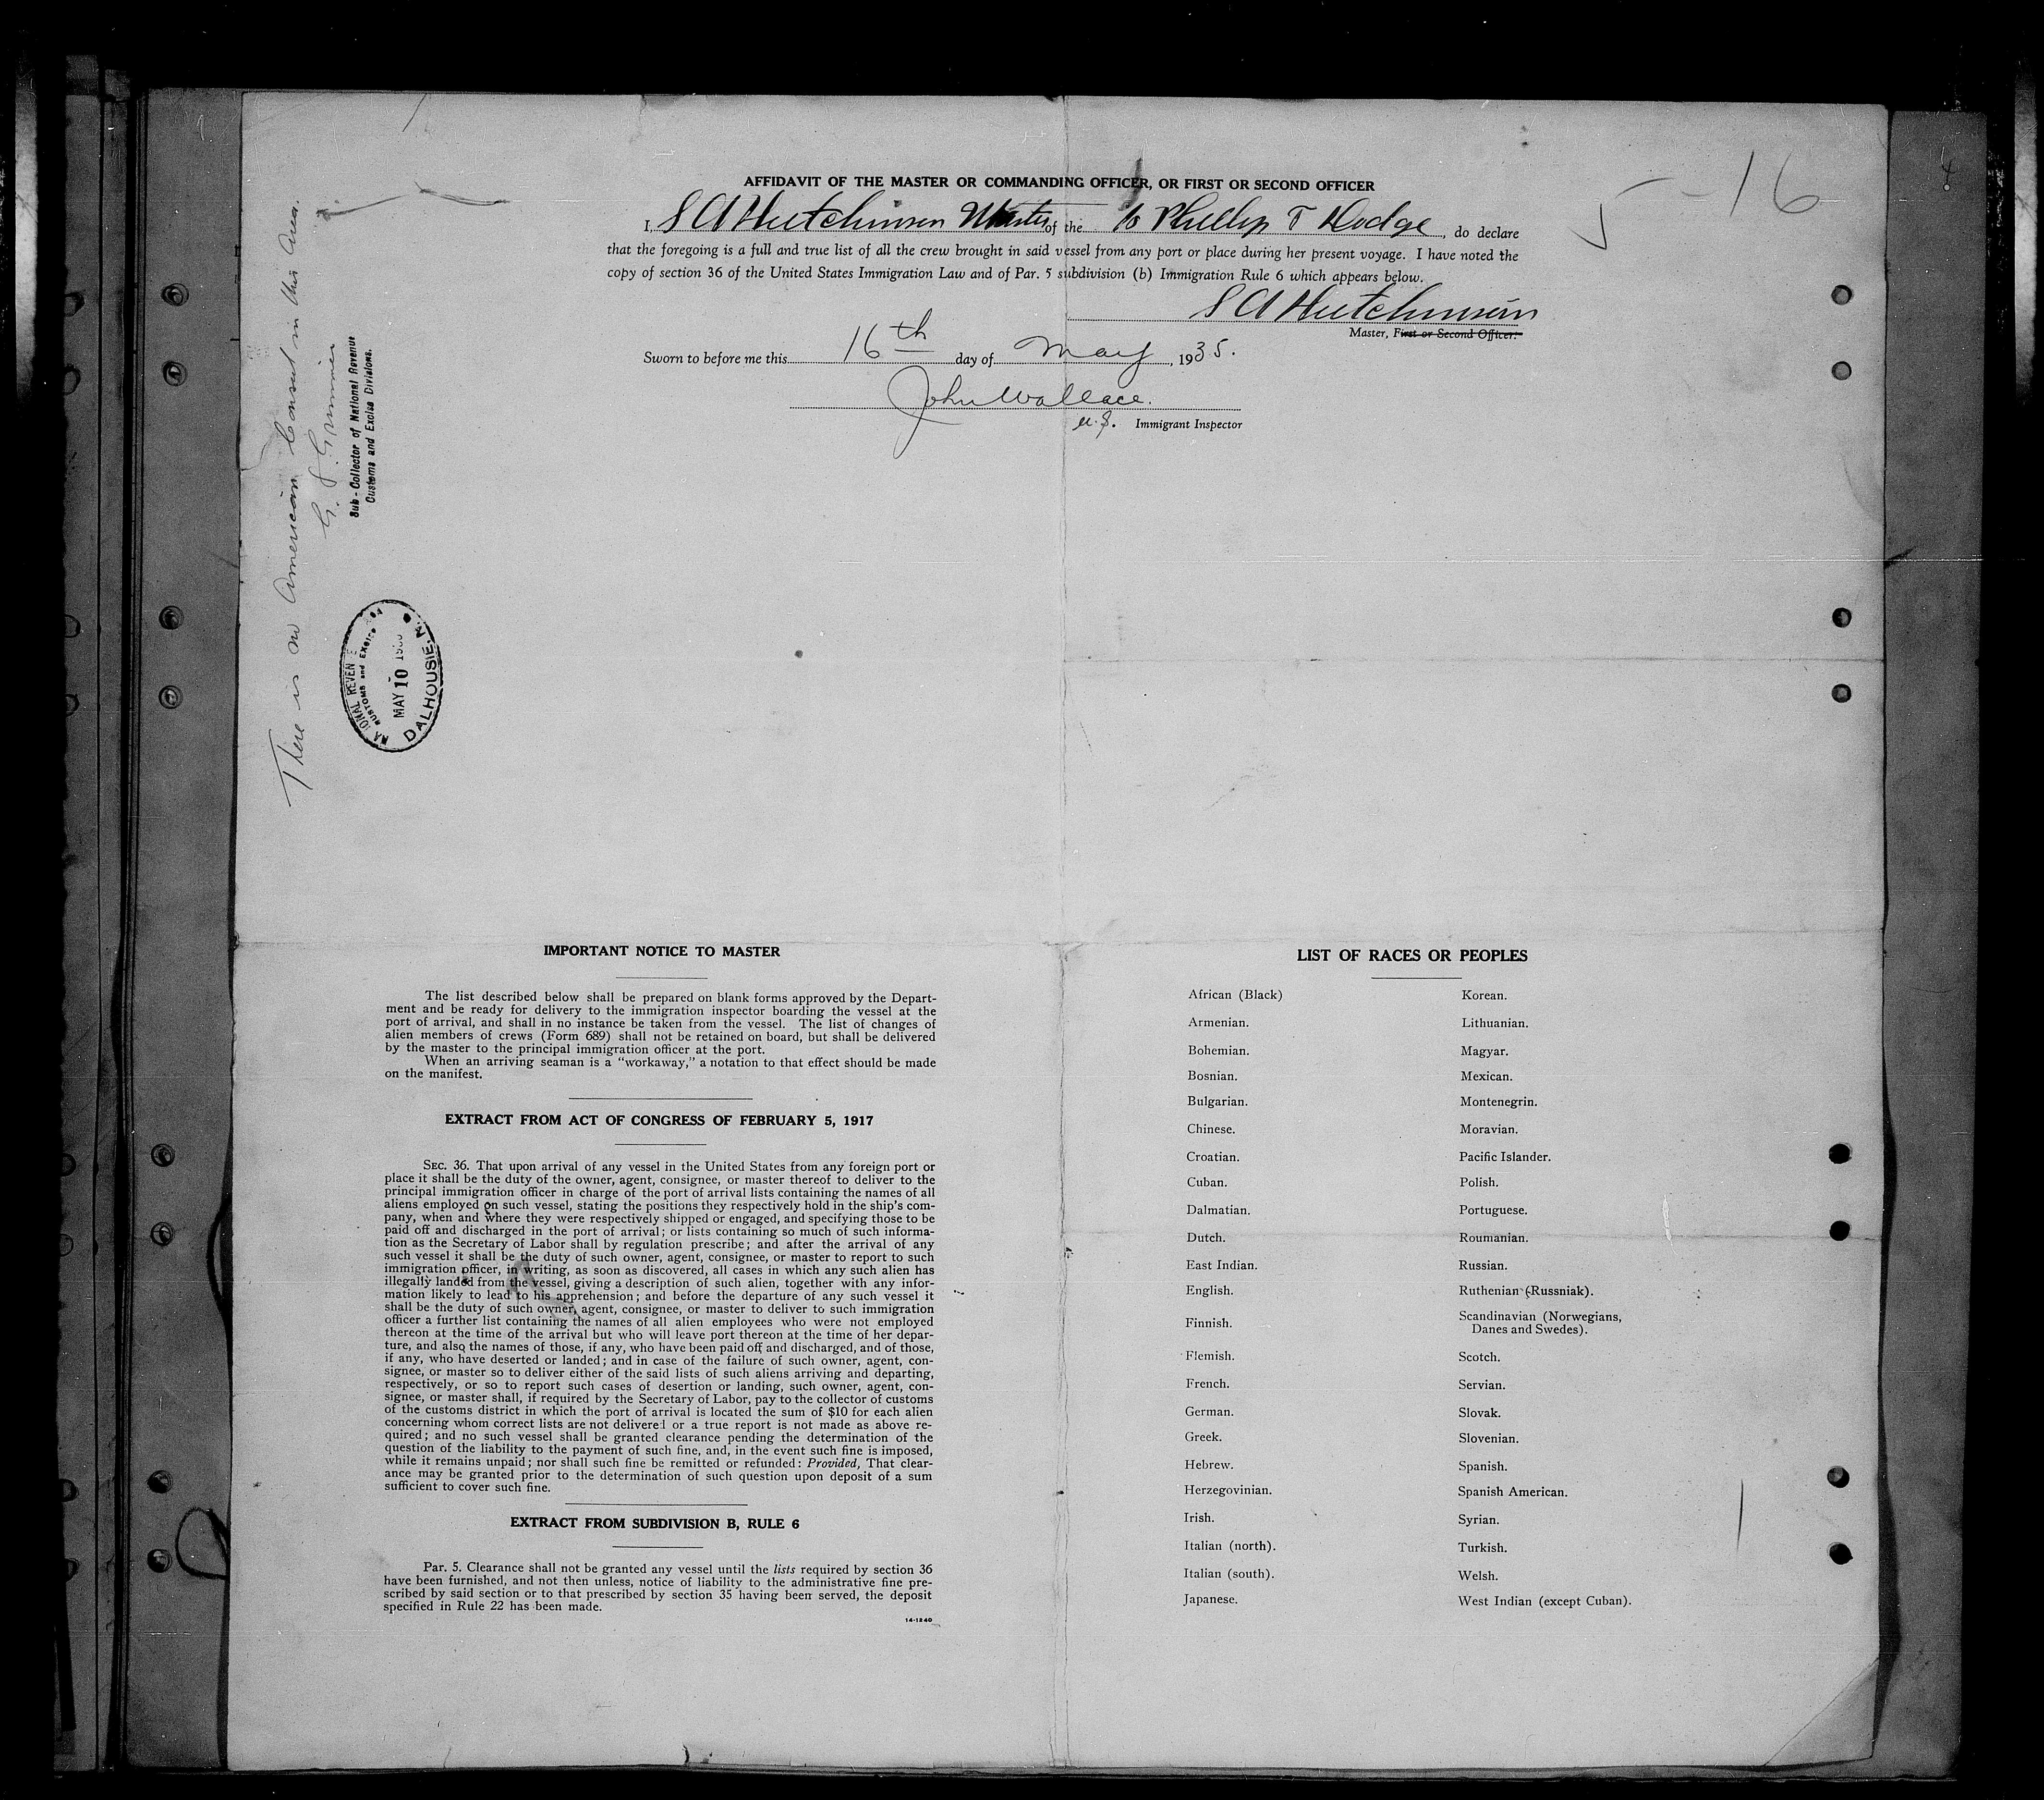 5-16
AFFIDAVIT OF THE MASTER OR COMMANDING OFFICER, OR FIRST OR SECOND OFFICER
I, S A Hutchinson Master of the Phillip T Dodge, do declare
that the foregoing is a full and true list of all the crew brought in said vessel from any port or place during her present voyage. I have noted the
copy of section 36 of the United States Immigration Law and of Par. 5 subdivision (b) Immigration Rule 6 which appears below.
S A Hutchinson
Master, First or Second Officer.
Sworn to before me this 16th day of May, 1935.
John Wallace.
U.S. Immigrant Inspector
There is no American Consul in this Area.
Sub-Collector of National Revenue
Customs and Excise Divisions.
NATIONAL REVENUE
CUSTOMS and EXCISE
MAY 10
DALHOUSIE, N.
IMPORTANT NOTICE TO MASTER
The list described below shall be prepared on blank forms approved by the Depart-
ment and be ready for delivery to the immigration inspector boarding the vessel at the
port of arrival, and shall in no instance be taken from the vessel. The list of changes of
alien members of crews (Form 689) shall not be retained on board, but shall be delivered
by the master to the principal immigration officer at the port.
When an arriving seaman is a "workaway," a notation to that effect should be made
on the manifest.
EXTRACT FROM ACT OF CONGRESS OF FEBRUARY 5, 1917
SEC. 36. That upon arrival of any vessel in the United States from any foreign port or
place it shall be the duty of the owner, agent, consignee, or master thereof to deliver to the
principal immigration officer in charge of the port of arrival lists containing the names of all
aliens employed on such vessel, stating the positions they respectively hold in the ship's com-
pany, when and where they were respectively shipped or engaged, and specifying those to be
paid off and discharged in the port of arrival; or lists containing so much of such informa-
tion as the Secretary of Labor shall by regulation prescribe; and after the arrival of any
such vessel it shall be the duty of such owner, agent, consignee, or master to report to such
immigration officer, in writing, as soon as discovered, all cases in which any such alien has
illegally landed from the vessel, giving a description of such alien, together with any infor-
mation likely to lead to his apprehension; and before the departure of any such vessel it
shall be the duty of such owner, agent, consignee, or master to deliver to such immigration
officer a further list containing the names of all alien employees who were not employed
thereon at the time of the arrival but who will leave port thereon at the time of her depar-
ture, and also the names of those, if any, who have been paid off and discharged, and of those,
if any, who have deserted or landed; and in case of the failure of such owner, agent, con-
signee, or master so to deliver either of the said lists of such aliens arriving and departing,
respectively, or so to report such cases of desertion or landing, such owner, agent, con-
signee, or master shall, if required by the Secretary of Labor, pay to the collector of customs
of the customs district in which the port of arrival is located the sum of $10 for each alien
concerning whom correct lists are not delivered or a true report is not made as above re-
quired; and no such vessel shall be granted clearance pending the determination of the
question of the liability to the payment of such fine, and, in the event such fine is imposed,
while it remains unpaid; nor shall such fine be remitted or refunded: Provided, That clear-
ance may be granted prior to the determination of such question upon deposit of a sum
sufficient to cover such fine.
EXTRACT FROM SUBDIVISION B, RULE 6
Par. 5. Clearance shall not be granted any vessel until the lists required by section 36
have been furnished, and not then unless, notice of liability to the administrative fine pre-
scribed by said section or to that prescribed by section 35 having been served, the deposit
specified in Rule 22 has been made.
14-1240
LIST OF RACES OR PEOPLES
African (Black)
Armenian.
Bohemian.
Bosnian.
Bulgarian.
Chinese.
Croatian.
Cuban.
Dalmatian.
Dutch.
East Indian.
English.
Finnish.
Flemish.
French.
German.
Greek.
Hebrew.
Herzegovinian.
Irish.
Italian (north).
Italian (south).
Japanese.
Korean.
Lithuanian.
Magyar.
Mexican.
Montenegrin.
Moravian.
Pacific Islander.
Polish.
Portuguese.
Roumanian.
Russian.
Ruthenian (Russniak).
Scandinavian (Norwegians,
Danes and Swedes).
Scotch.
Servian.
Slovak.
Slovenian.
Spanish.
Spanish American.
Syrian.
Turkish.
Welsh.
West Indian (except Cuban).